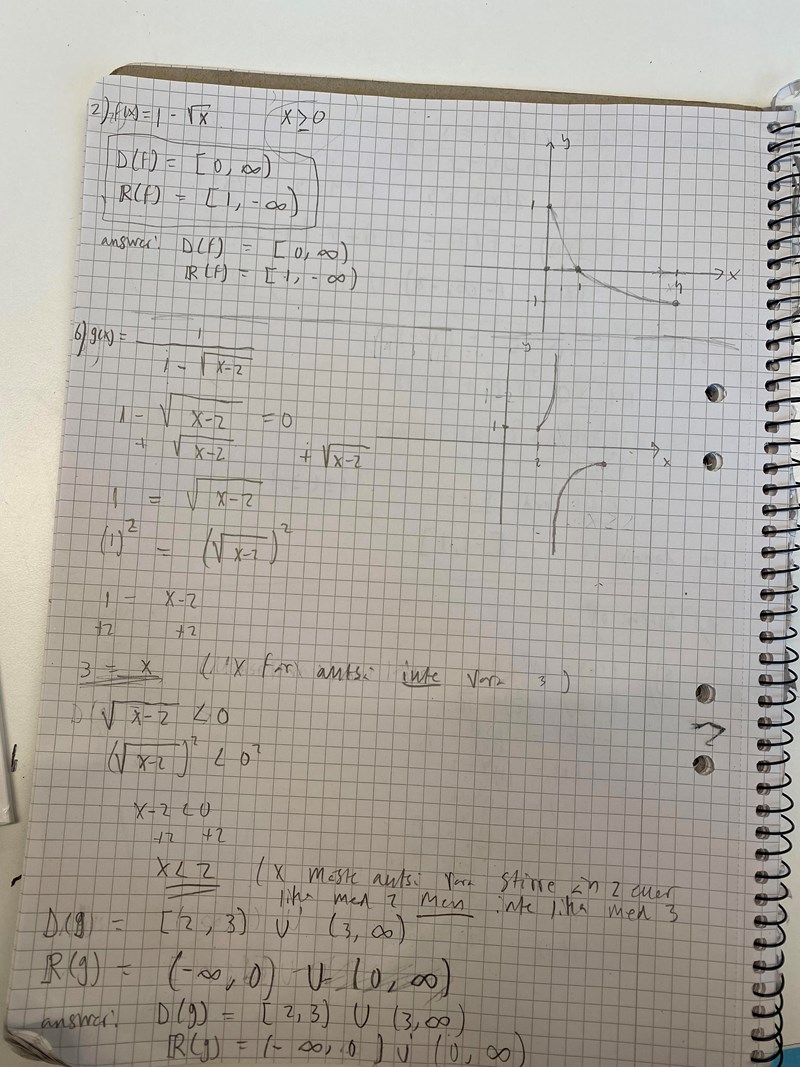 2) f(x) = 1 - √x    x ≥ 0
D(f) = [0, ∞)
R(f) = [1, -∞)
answer: D(f) = [0, ∞)
R(f) = [1, -∞)
y
1
1
4
x
-1
6) g(x) = 1 / (1 - √(x-2))
y
1
2
x
1 - √(x-2) = 0
+ √(x-2)    + √(x-2)
1 = √(x-2)
(1)² = (√(x-2))²
1 = x-2
+2    +2
3 = x    ( x får alltså inte vara 3 )
√(x-2) < 0
(√(x-2))² < 0²
x-2 < 0
+2  +2
x < 2    (x måste alltså vara större än 2 eller
lika med 2 men inte lika med 3
D(g) = [2, 3) ∪ (3, ∞)
R(g) = (-∞, 0) ∪ (0, ∞)
answer: D(g) = [2, 3) ∪ (3, ∞)
R(g) = (-∞, 0) ∪ (0, ∞)